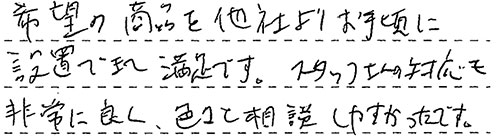 希望の商品を他社よりお手頃に
設置できて満足です。スタッフさんの対応も
非常に良く、色々と相談しやすかったです。